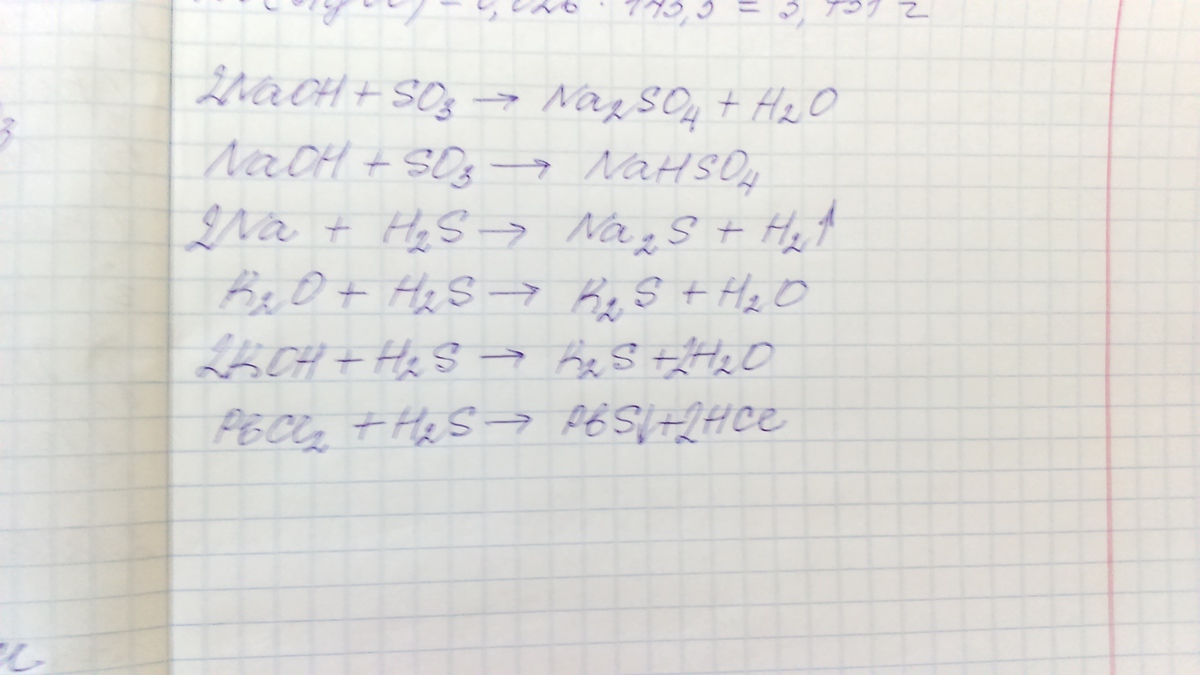 = 0,026 · 143,5 = 3,731 г
2NaOH + SO₃ → Na₂SO₄ + H₂O
NaOH + SO₃ → NaHSO₄
2Na + H₂S → Na₂S + H₂↑
K₂O + H₂S → K₂S + H₂O
2KOH + H₂S → K₂S + 2H₂O
PbCl₂ + H₂S → PbS↓ + 2HCl